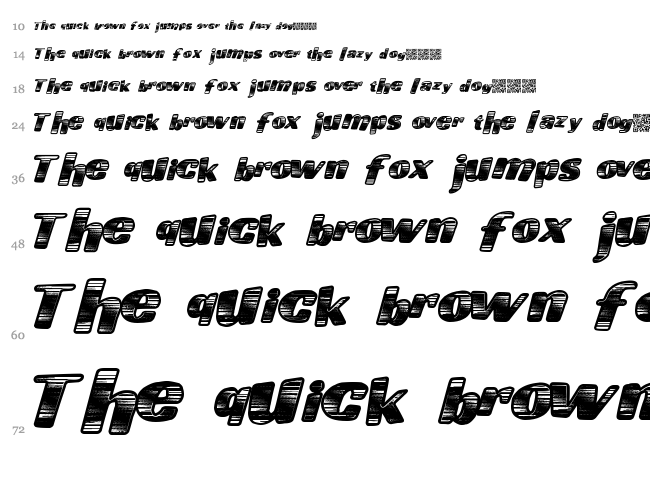 10 The quick brown fox jumps over the lazy dog
14 The quick brown fox jumps over the lazy dog
18 The quick brown fox jumps over the lazy dog
24 The quick brown fox jumps over the lazy dog
36 The quick brown fox jumps ove
48 The quick brown fox ju
60 The quick brown fo
72 The quick brown